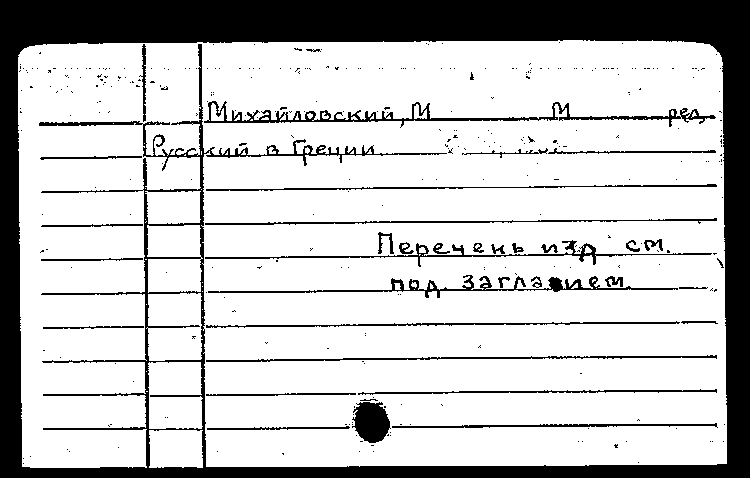 Михайловский, М М ред.
Русский в Греции
Перечень изд см.
под. заглавием.